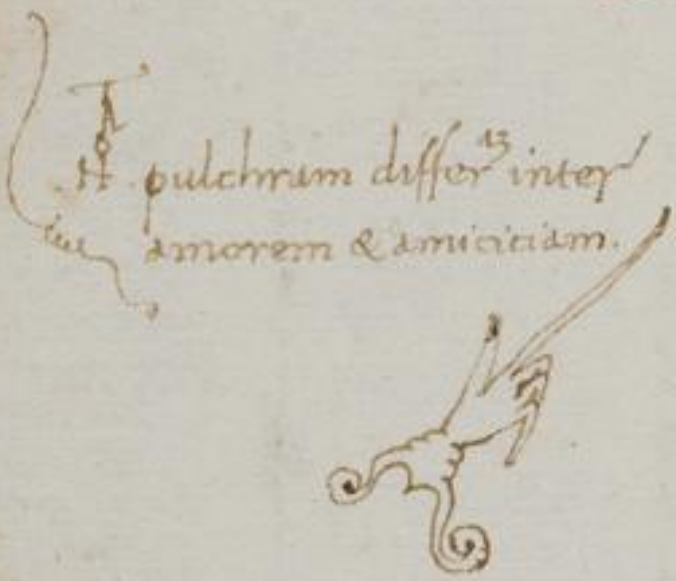 pulchram differ inter
amorem & amiciciam.